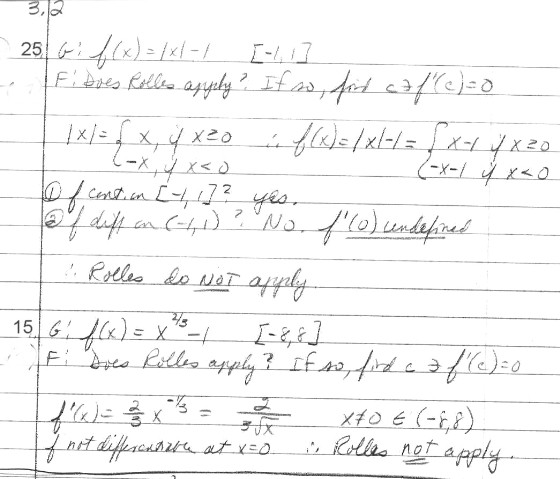 3.2
25 G: f(x) = |x| - 1 [-1, 1]
F: Does Rolles apply? If so, find c ∋ f'(c) = 0
|x| = { x, if x ≥ 0 ∴ f(x) = |x| - 1 = { x - 1 if x ≥ 0
-x, if x < 0 -x - 1 if x < 0
① f cont. on [-1, 1]? yes.
② f diff on (-1, 1)? No. f'(0) undefined
∴ Rolles do NOT apply
15 G: f(x) = x^{2/3} - 1 [-8, 8]
F: Does Rolles apply? If so, find c ∋ f'(c) = 0
f'(x) = 2/3 x^{-1/3} = 2/(3∛x) x ≠ 0 ∈ (-8, 8)
f not differentiable at x = 0 ∴ Rolles not apply.